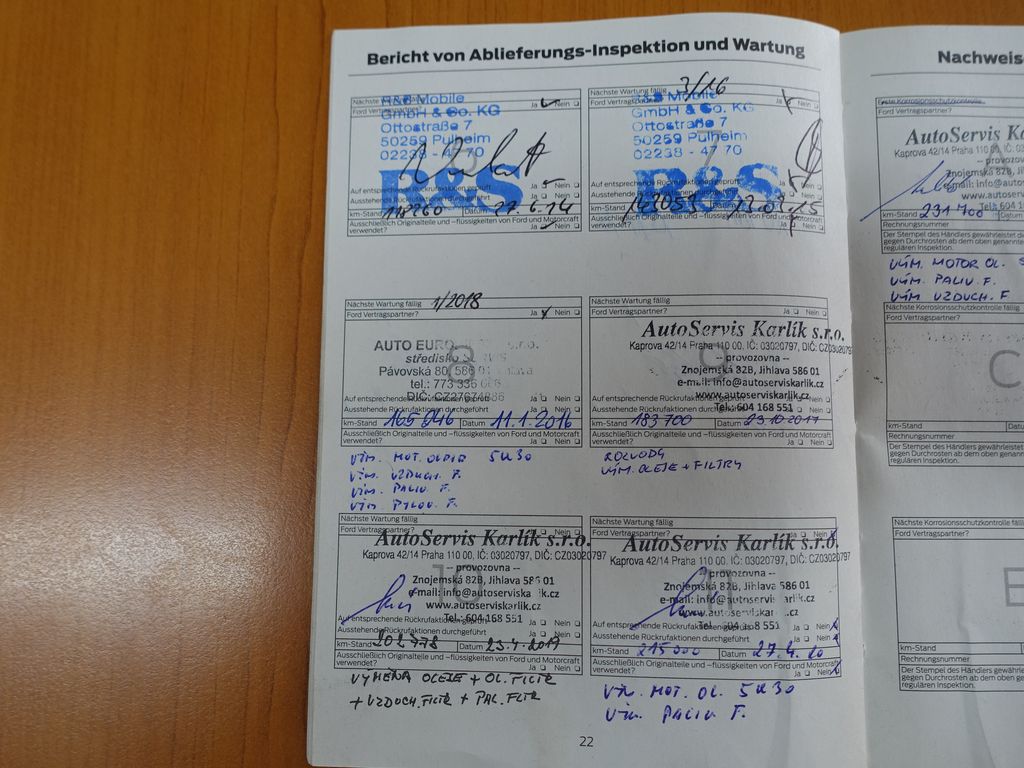 Bericht von Ablieferungs-Inspektion und Wartung
Nächste Wartung fällig
Ford Vertragspartner? Ja Nein
R&S Mobile
GmbH & Co. KG
Ottostraße 7
50259 Pulheim
02238 - 47 70
R&S
Auf entsprechende Rückrufaktionen geprüft Ja Nein
Ausstehende Rückrufaktionen durchgeführt Ja Nein
km-Stand Datum 27.6.14
Ausschließlich Originalteile und –flüssigkeiten von Ford und Motorcraft
verwendet? Ja Nein
Nächste Wartung fällig 3/16
Ford Vertragspartner? Ja Nein
R&S Mobile
GmbH & Co. KG
Ottostraße 7
50259 Pulheim
02238 - 47 70
R&S
Auf entsprechende Rückrufaktionen geprüft Ja Nein
Ausstehende Rückrufaktionen durchgeführt Ja Nein
km-Stand Datum
Ausschließlich Originalteile und –flüssigkeiten von Ford und Motorcraft
verwendet? Ja Nein
Nächste Wartung fällig 1/2018
Ford Vertragspartner? Ja Nein
8
AUTO EURO s.r.o.
středisko
Pávovská 80, 586 01 Jihlava
tel.: 773 336
DIČ: CZ27674886
Auf entsprechende Rückrufaktionen geprüft Ja Nein
Ausstehende Rückrufaktionen durchgeführt Ja Nein
km-Stand 165 246 Datum 11.1.2016
Ausschließlich Originalteile und –flüssigkeiten von Ford und Motorcraft
verwendet? Ja Nein
VÝM. MOT. OLEJE 5W30
VÝM. VZDUCH. F.
VÝM. PALIV. F.
VÝM. PYLOV. F.
Nächste Wartung fällig
Ford Vertragspartner? Ja Nein
9
AutoServis Karlík s.r.o.
Kaprova 42/14 Praha 110 00, IČ: 03020797, DIČ: CZ03020797
-- provozovna --
Znojemská 82B, Jihlava 586 01
e-mail: info@autoserviskarlik.cz
www.autoserviskarlik.cz
Tel.: 604 168 551
Auf entsprechende Rückrufaktionen geprüft Ja Nein
Ausstehende Rückrufaktionen durchgeführt Ja Nein
km-Stand 183 700 Datum 23.10.2017
Ausschließlich Originalteile und –flüssigkeiten von Ford und Motorcraft
verwendet? Ja Nein
ROZVODY
VÝM. OLEJE + FILTRY
Nächste Wartung fällig
Ford Vertragspartner? Ja Nein
10
AutoServis Karlík s.r.o.
Kaprova 42/14 Praha 110 00, IČ: 03020797, DIČ: CZ03020797
-- provozovna --
Znojemská 82B, Jihlava 586 01
e-mail: info@autoserviskarlik.cz
www.autoserviskarlik.cz
Tel.: 604 168 551
Auf entsprechende Rückrufaktionen geprüft Ja Nein
Ausstehende Rückrufaktionen durchgeführt Ja Nein
km-Stand 202 778 Datum 23.4.2019
Ausschließlich Originalteile und –flüssigkeiten von Ford und Motorcraft
verwendet? Ja Nein
VÝMĚNA OLEJE + OL. FILTR
+ VZDUCH. FILTR + PAL. FLTR
Nächste Wartung fällig
Ford Vertragspartner? Ja Nein
11
AutoServis Karlík s.r.o.
Kaprova 42/14 Praha 110 00, IČ: 03020797, DIČ: CZ03020797
-- provozovna --
Znojemská 82B, Jihlava 586 01
e-mail: info@autoserviskarlik.cz
www.autoserviskarlik.cz
Tel.: 604 168 551
Auf entsprechende Rückrufaktionen geprüft Ja Nein
Ausstehende Rückrufaktionen durchgeführt Ja Nein
km-Stand 215 000 Datum 27.4.20
Ausschließlich Originalteile und –flüssigkeiten von Ford und Motorcraft
verwendet? Ja Nein
VÝM. MOT. OL. 5W30
VÝM. PALIV F.
22
Nachweis
Erste Korrosionsschutzkontrolle
AutoServis Karl
Kaprova 42/14 Praha 110 00, IČ: 0
-- provozovn
Znojemská 82B, J
email: info@auto
www.autoserv
Tel.: 604 1
km-Stand 231 700 Datum
Rechnungsnummer
Der Stempel des Händlers gewährleistet d
gegen Durchrosten ab dem oben genannte
regulären Inspektion.
VÝM. MOTOR OL.
VÝM. PALIV. F.
VÝM VZDUCH. F
Nächste Korrosionsschutzkontrolle fällig
Ford Vertragspartner?
C
km-Stand
Rechnungsnummer
Der Stempel des Händlers gewährleistet
gegen Durchrosten ab dem oben genan
regulären Inspektion.
Nächste Korrosionsschutzkontrolle fälli
Ford Vertragspartner?
E
km-Stand
Rechnungsnummer
Der Stempel des Händlers gewährleis
gegen Durchrosten ab dem oben gen
regulären Inspektion.